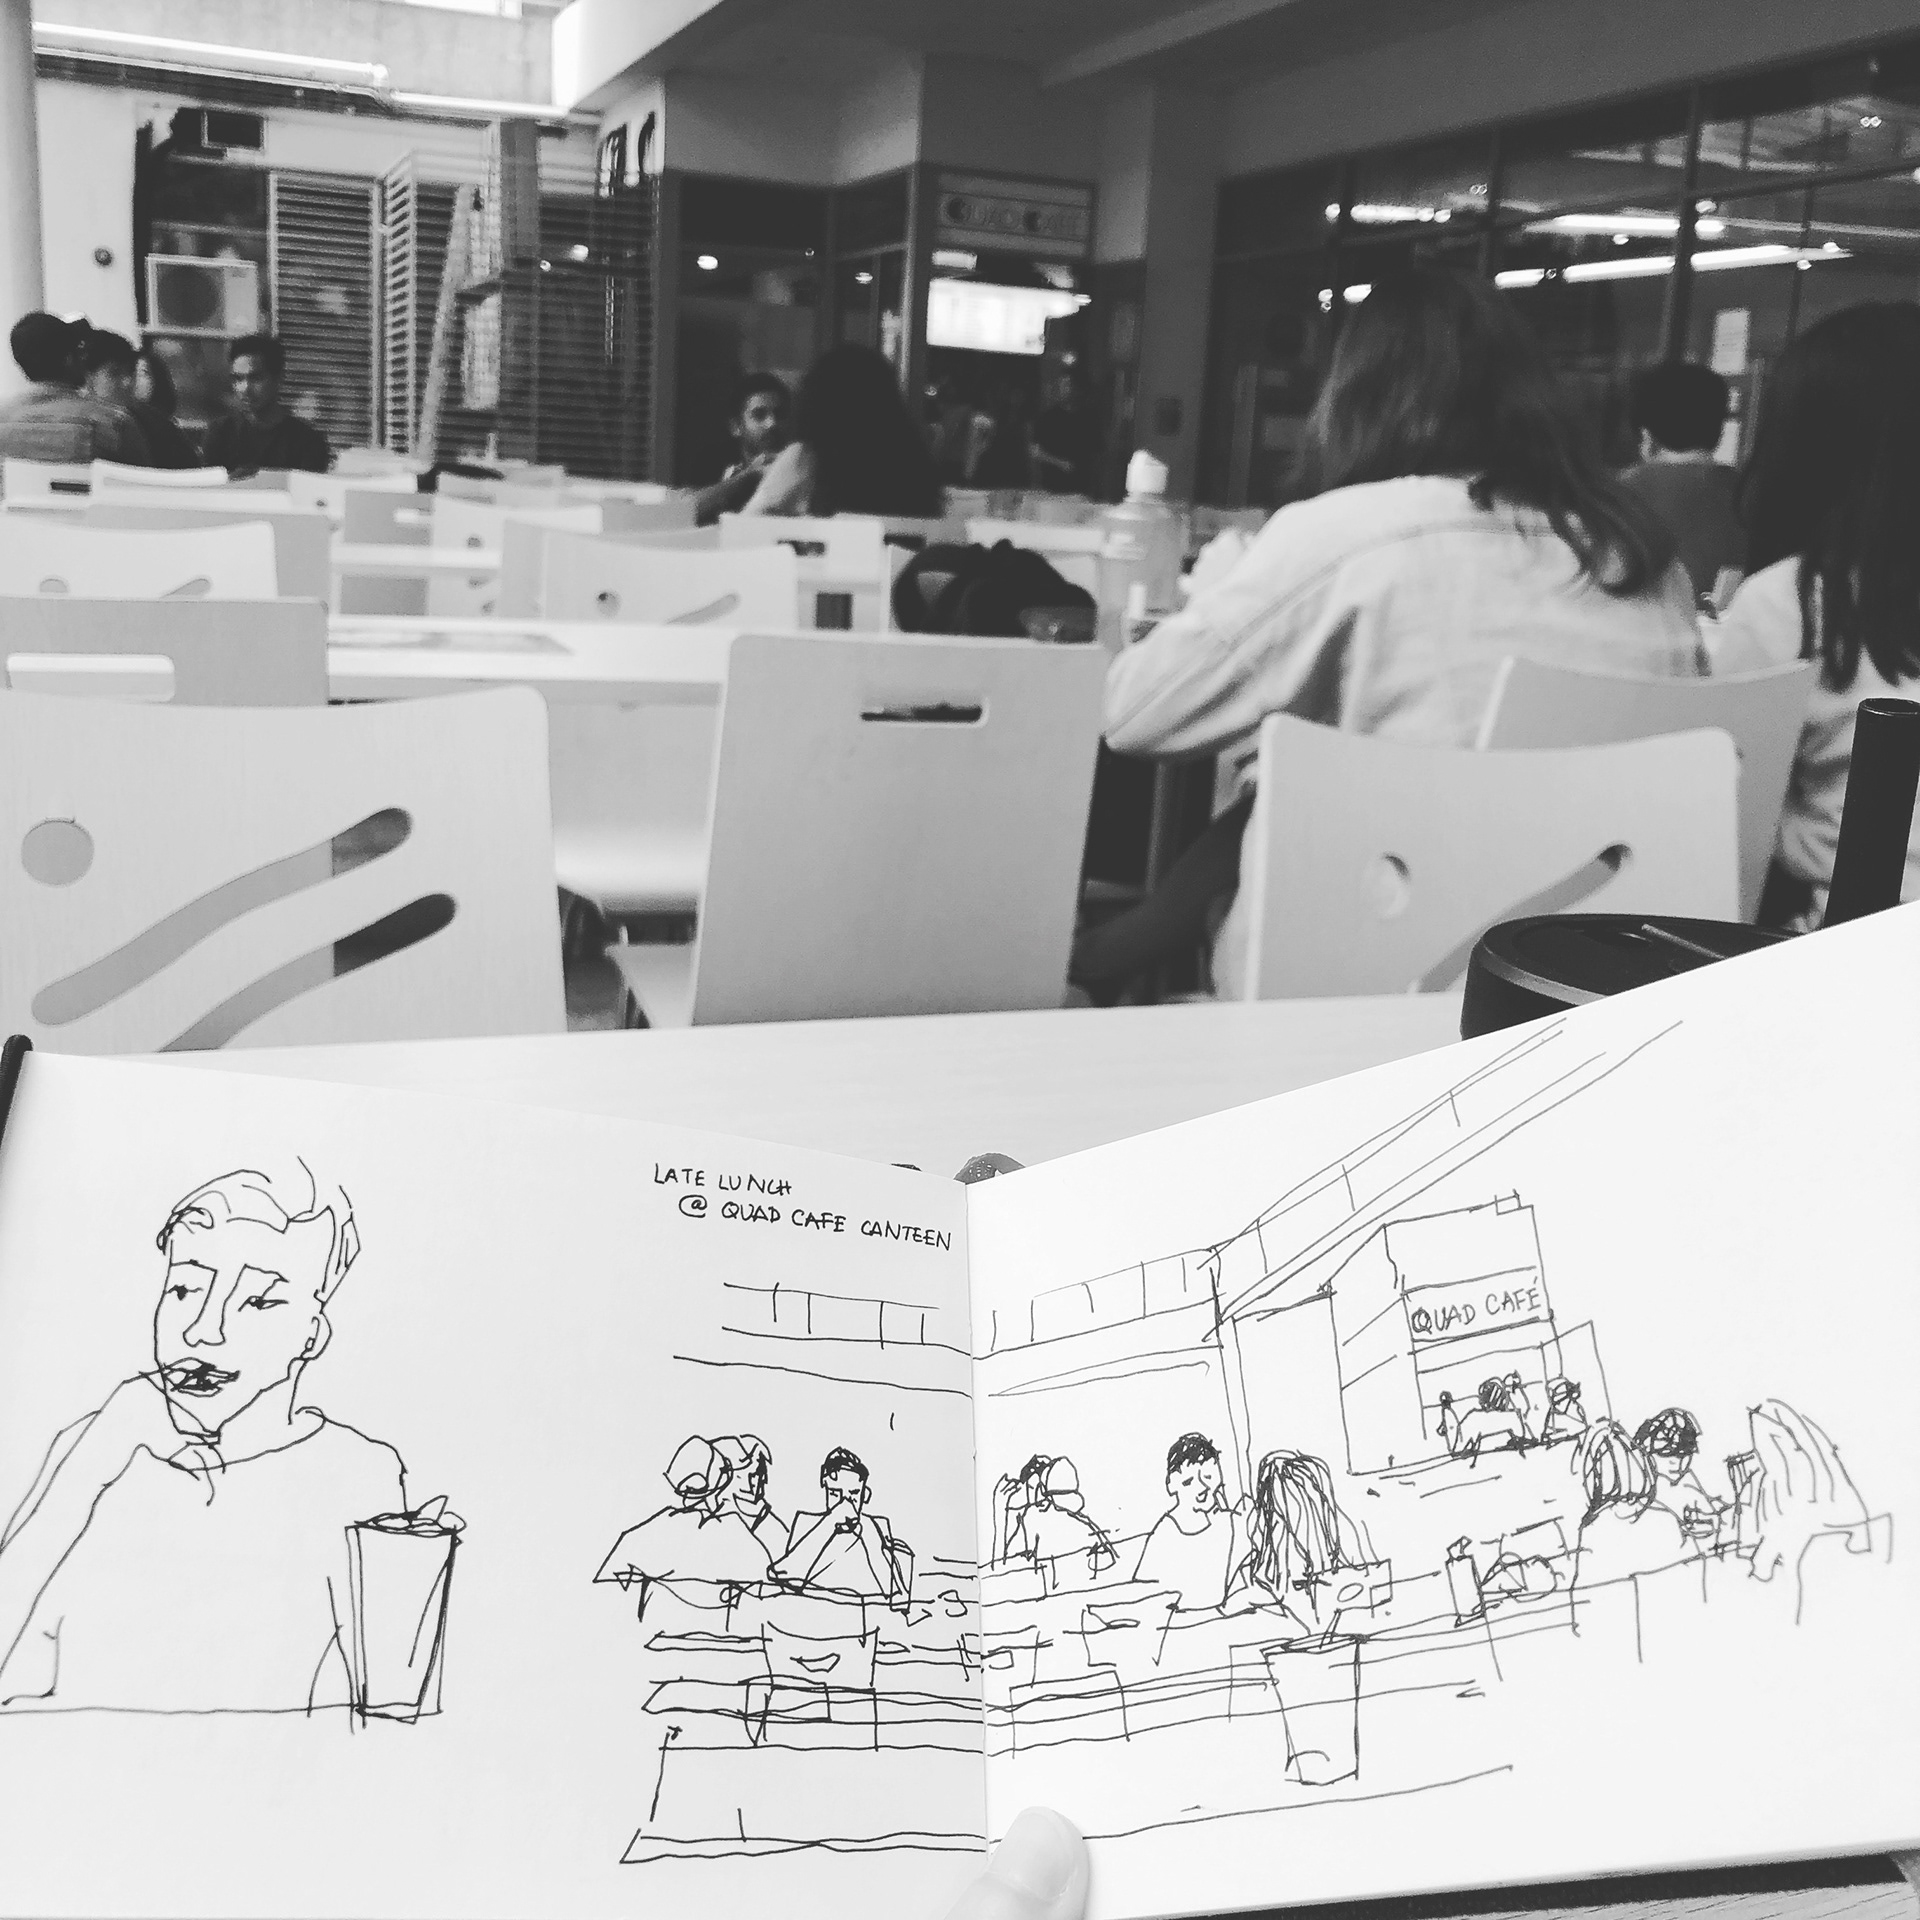 QUAD CAFE
LATE LUNCH
@ QUAD CAFE CANTEEN
QUAD CAFÉ